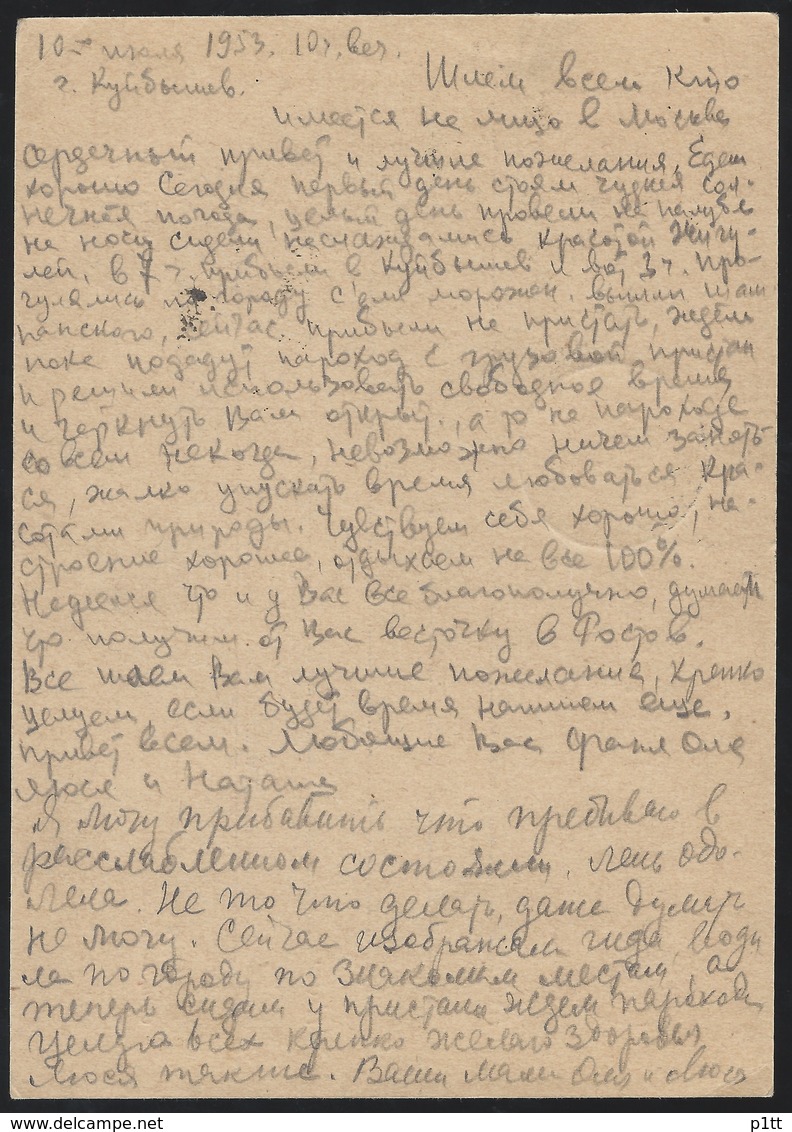 10го июля 1953. 10ч. веч.
г. Куйбышев.
Шлем всем кто
имеется на лицо в Москве
сердечный привет и лучшие пожелания, Едем
хорошо Сегодня первый день стоит чудная сол-
нечная погода, целый день провели на палубе
на носу сидели наслаждались красотой Жигу-
лей, в 7 ч. прибыли в Куйбышев и вот 3 ч. про-
гулялись по городу с'ели морожен. выпили шам
панского, сейчас прибыли на пристань, ждем
пока подадут пароход с грузовой пристани
и решили использовать свободное время
и черкнуть Вам открыт., а то на пароходе
совсем некогда, невозможно ничем занять
ся, жалко упускать время любоваться кра-
сотами природы. Чувствуем себя хорошо, на-
строение хорошее, отдыхаем на все 100%.
Надеемся что и у Вас все благополучно, думаем
что получим от Вас весточку в Ростов.
Все шлем Вам лучшие пожелания, крепко
целуем, если будет время напишем еще.
Привет всем. Любящие Вас Оля
Люся и Наташа
Я могу прибавить что пребываю в
расслабленном состоянии, лень одо-
лела. Не то что делать, даже думать
не могу. Сейчас изображала гида, води
ла по городу по знакомым местам, а
теперь сидим у пристани ждем парохода
Целую всех крепко желаю здоровья
Люся также. Ваши мама Оля и Люся
p1tt